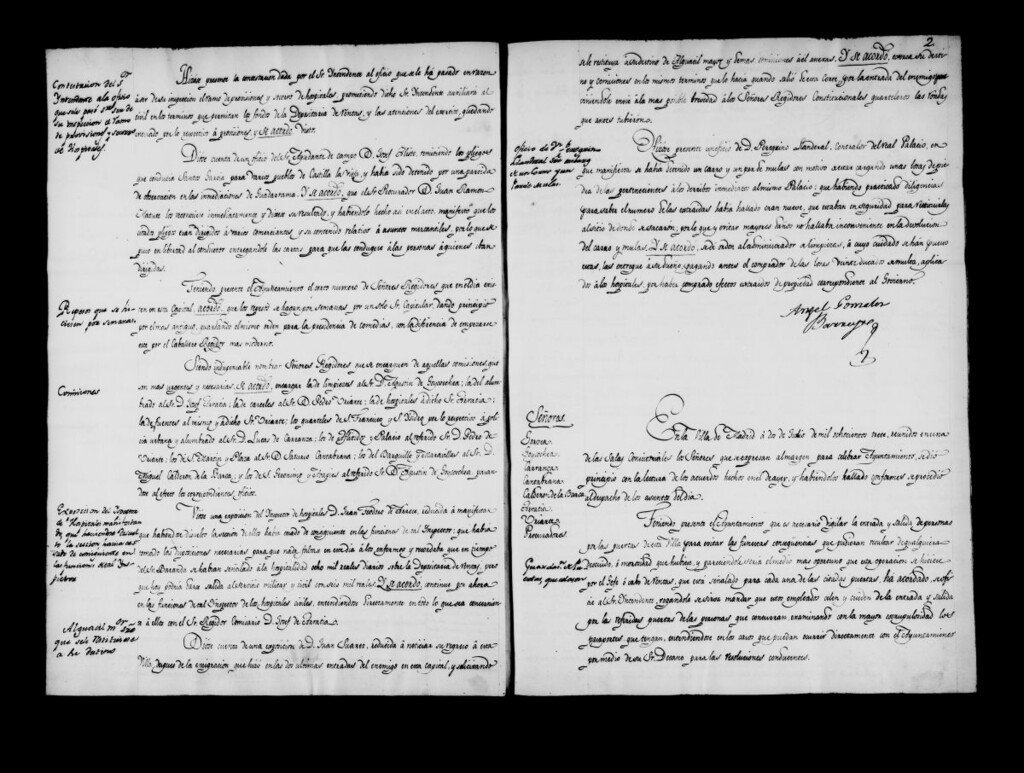 Contestacion del Sr.
Intendente al oficio
que se le pasó
de su inspeccion el ramo
de provisiones y socorro
de Hospitales.
Hizose presente la contestacion dada por el Sr. Intendente al oficio que se le ha pasado en razon
de su inspeccion el ramo de provisiones y socorro de hospitales, prometiendo dicho Sr. Intendente auxiliar al
civil en los terminos que permitan los fondos de la Depositaria de Rentas, y las atenciones del exercito, quedando
enterado por lo respectivo á provisiones, y se acordó Visto.
Dióse cuenta de un oficio del Sr. Ayudante de campo D. Josef remitiendo los pliegos
que conducia Santos Garcia para varios pueblos de Castilla la Vieja, y habia sido detenido por una partida
de observacion en las inmediaciones de Guadarrama. Y se acordó, que el Sr. Procurador D. Juan Ramon
los reconozca inmediatamente y diese su resultado, y habiendolo hecho asi en el acto, manifestó que los
citados pliegos eran dirigidos á varios comerciantes, y su contenido relativo á asuntos mercantiles, por lo que se
puso en libertad al conductor entregandole las cartas, para que las conduzca á las personas á quienes iban
dirigidas.
Repesos que se hi-
ciesen por semanas.
Teniendo presente el Ayuntamiento el corto numero de Señores Regidores que en el dia exis-
ten en esta Capital, acordó, que los repesos se hagan por semanas por un solo Sr. Capitular, dando principio
por el mas antiguo, guardando el mismo orden para la presidencia de comedias, con la diferencia de empezarse
este por el Caballero Regidor mas moderno.
Comisiones
Siendo indispensable nombrar Señores Regidores que se encarguen de aquellas comisiones que
son mas urgentes y necesarias, se acordó, encargar la de limpieza al Sr. D. Agustin de Goycoechea; la del alum-
brado al Sr. D. Josef la de carceles al Sr. D. Pedro Uriarte; la de hospitales á dicho Sr.
la de fuentes al mismo y á dicho Sr. Uriarte; los quarteles de S. Francisco y S. Isidro por lo respectivo á poli-
cia urbana y alumbrado al Sr. D. Lucas de Carranza; los de Afligidos y Palacio al referido Sr. D. Pedro de
Uriarte; los de S. Martin y Plaza al Sr. D. Saturio Cantabrana; los del Barquillo y Maravillas al Sr. D.
Miguel Calderon de la Barca; y los de S. Geronimo y Avapies al referido Sr. D. Agustin de Goycoechea, pasan-
dose al efecto los correspondientes oficios.
Exposicion del Inspector
de Hospitales manifestan-
do que
to la seccion
sado de consiguiente en
las funciones de tal Ins-
pector.
Vióse una exposicion del Inspector de hospitales D. reducida á manifestar
que habiendose disuelto la seccion de ellos habia cesado de consiguiente en las funciones de tal Inspector; que habia
tomado las disposiciones necesarias, para que nada faltase en el dia á los enfermos, y recordaba que en tiempo
del Sr. Barreda se habian señalado á la hospitalidad ocho mil reales diarios sobre la Depositaria de Rentas, pero
que hoy podria pasar la del servicio militar y civil con seis mil reales. Y se acordó, continúe por ahora
en las funciones de tal Inspector de los hospitales civiles, entendiendose directamente en todo lo que sea concernien-
te á ellos con el Sr. Regidor Comisario D. Josef de
Alguacil mor.
que se le restituya
á su destino
Dióse cuenta de una exposicion de D. Juan Suarez, reducida á noticiar su regreso á esta
Villa, despues de la emigracion que hizo en las dos ultimas entradas del enemigo en esta capital, y solicitando
2
se le restituya á su destino de Alguacil mayor y demas comisiones á él anexas. Y se acordó, exerza su desti-
no y comisiones en los mismos terminos que lo hacia quando salió de esta Corte, por la entrada del enemigo, pre-
viniendole envie á la mas posible brevedad á los Señores Regidores Constitucionales quarteleros las rondas
que antes tubieron.
Oficio de D. Peregrin
Llanderal sobre embargo
de un Carro y un
par de mulas.
Hizose presente un oficio de D. Peregrino Llanderal, Contralor del real Palacio, en
que manifiesta se habia detenido un carro y un par de mulas con motivo de estar cargando unas losas de pie-
dra de las pertenecientes á los derribos inmediatos al mismo Palacio; que habiendo practicado diligencias
para saber el numero de las extraidas habia hallado eran nueve, que estaban en seguridad para restituirlas
al sitio de donde se sacaron; por lo que y evitar mayores daños no hallaba inconveniente en la devolucion
del carro y mulas. Y se acordó, se dé orden al administrador de limpiezas, á cuyo cuidado se han puesto
estas, las entregue á su dueño, pagando antes el comprador de las losas veinte ducados de multa, aplica-
dos á los hospitales, por haber comprado efectos extraidos de propiedad correspondiente al Gobierno.
Angel Gonzalez
Barreyro
Señores.
Goycoechea
Carranza
Cantabrana
Calderon de la Barca
Uriarte
Procuradores
En la Villa de Madrid á dos de Julio de mil ochocientos trece, reunidos en una
de las Salas Consistoriales los Señores que se expresan al margen para celebrar Ayuntamiento, se dió
principio con la lectura de los acuerdos hechos en el de ayer, y habiendolos hallado conformes, se procedió
al despacho de los asuntos del dia.
Teniendo presente el Ayuntamiento, que es necesario vigilar la entrada y salida de personas
por las puertas de esta Villa para evitar las funestas consequencias que pudieran resultar de qualquiera
descuido, ó morosidad que hubiese, y pareciendole seria el medio mas oportuno que esta operacion se hiciese
por el Gefe ó cabo de Rentas, que está señalado para cada una de las citadas puertas, ha acordado, se ofi-
cie al Sr. Intendente, rogandole se sirva mandar que estos empleados celen y cuiden de la entrada y salida
por las referidas puertas de las personas que concurran examinando con la mayor escrupulosidad los
pasaportes que tengan, entendiendose en los casos que puedan ocurrir directamente con el Ayuntamiento
por medio de su Sr. Decano para las resoluciones conducentes.